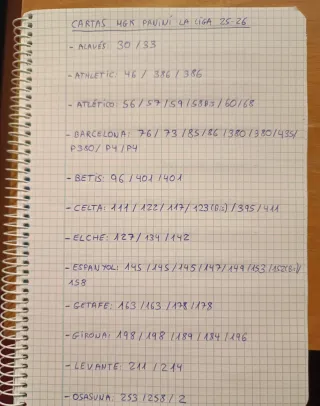 CARTAS MGK PANINI LA LIGA 25-26
- ALAVÉS 30 / 33
- ATHLETIC: 46 / 386 / 386
- ATLÉTICO: 56 / 57 / 59 / 58BIS / 60 / 68
- BARCELONA: 76 / 73 / 85 / 86 / 380 / 380 / 435 /
P380 / P4 / P4
- BETIS: 96 / 401 / 401
- CELTA: 111 / 122 / 117 / 123(Bis) / 395 / 411
- ELCHE: 127 / 134 / 142
- ESPANYOL: 145 / 145 / 145 / 147 / 149 / 153 / 152(Bis) /
158
- GETAFE: 163 / 163 / 178 / 178
- GIRONA: 198 / 198 / 189 / 184 / 196
- LEVANTE: 211 / 214
- OSASUNA: 253 / 258 / 2